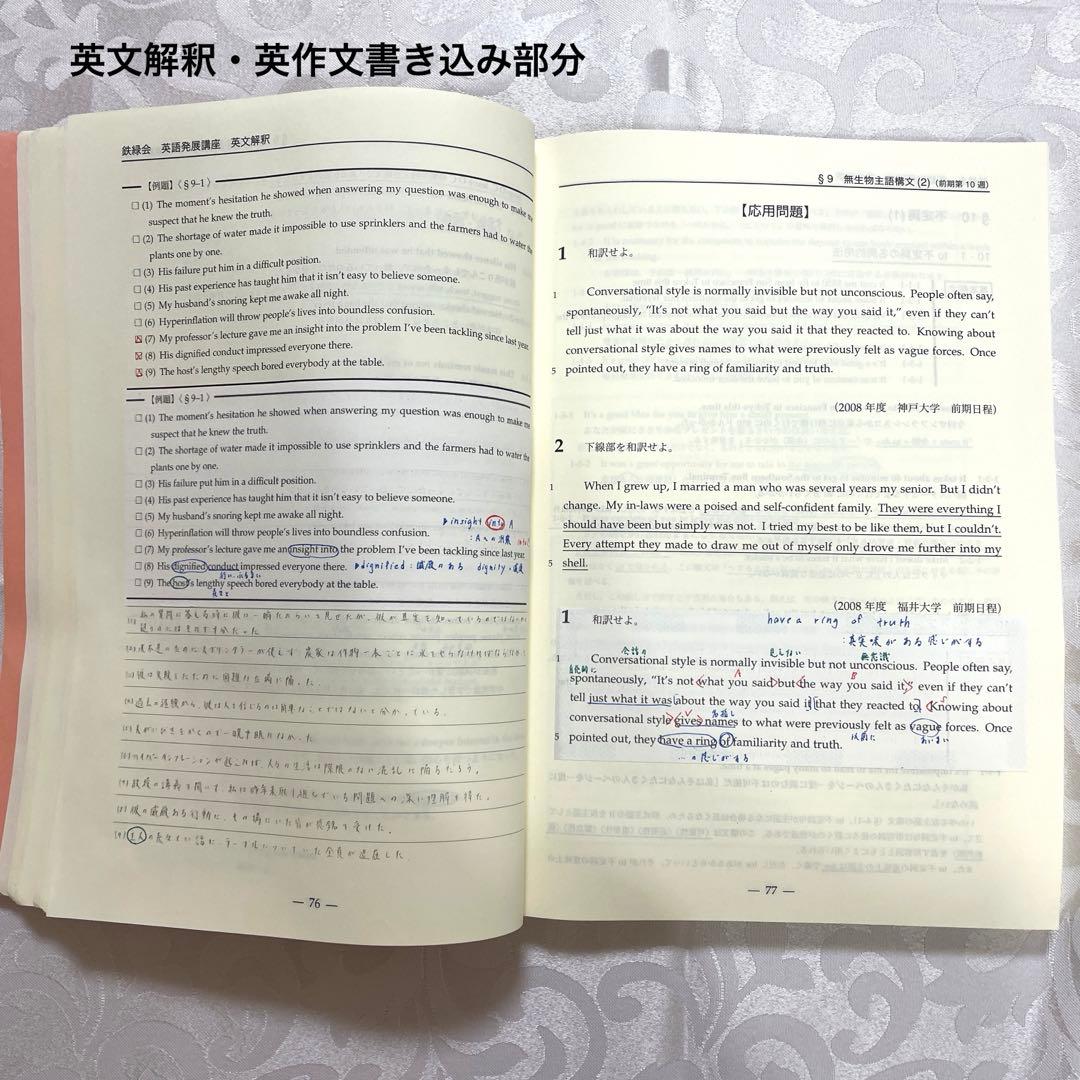 英文解釈・英作文書き込み部分
鉄緑会 英語発展講座 英文解釈
【例題】《§9-1》
□ (1) The moment's hesitation he showed when answering my question was enough to make me
suspect that he knew the truth.
□ (2) The shortage of water made it impossible to use sprinklers and the farmers had to water the
plants one by one.
□ (3) His failure put him in a difficult position.
□ (4) His past experience has taught him that it isn't easy to believe someone.
□ (5) My husband's snoring kept me awake all night.
□ (6) Hyperinflation will throw people's lives into boundless confusion.
□ (7) My professor's lecture gave me an insight into the problem I've been tackling since last year.
□ (8) His dignified conduct impressed everyone there.
□ (9) The host's lengthy speech bored everybody at the table.
【例題】《§9-1》
□ (1) The moment's hesitation he showed when answering my question was enough to make me
suspect that he knew the truth.
□ (2) The shortage of water made it impossible to use sprinklers and the farmers had to water the
plants one by one.
□ (3) His failure put him in a difficult position.
□ (4) His past experience has taught him that it isn't easy to believe someone.
□ (5) My husband's snoring kept me awake all night.
▶insight into A
□ (6) Hyperinflation will throw people's lives into boundless confusion.
: Aへの洞察
□ (7) My professor's lecture gave me an insight into the problem I've been tackling since last year.
□ (8) His dignified conduct impressed everyone there. ▶dignified : 威厳のある dignity
□ (9) The host's lengthy speech bored everybody at the table.
(3) 彼は失敗したために困難な立場に陥った。
(4) 過去の経験から、彼は人を信じるのは簡単なことではないと分かっている。
(7) 教授の講義を聞いて、私は昨年来取り組んでいる問題への深い理解を得た。
(8) 彼の威厳ある行動に、その場にいた皆が感銘を受けた。
— 76 —
§9 無生物主語構文(2) (前期第10週)
【応用問題】
1 和訳せよ。
1 Conversational style is normally invisible but not unconscious. People often say,
spontaneously, “It's not what you said but the way you said it,” even if they can't
tell just what it was about the way you said it that they reacted to. Knowing about
conversational style gives names to what were previously felt as vague forces. Once
5 pointed out, they have a ring of familiarity and truth.
(2008 年度 神戸大学 前期日程)
2 下線部を和訳せよ。
1 When I grew up, I married a man who was several years my senior. But I didn't
change. My in-laws were a poised and self-confident family. They were everything I
should have been but simply was not. I tried my best to be like them, but I couldn't.
Every attempt they made to draw me out of myself only drove me further into my
5 shell.
(2008 年度 福井大学 前期日程)
1 和訳せよ。
have a ring of truth
: 真実味がある感じがする
会話の 見えない 無意識
1 Conversational style is normally invisible but not unconscious. People often say,
spontaneously, “It's not what you said but the way you said it,” even if they can't
tell just what it was about the way you said it that they reacted to. Knowing about
conversational style gives names to what were previously felt as vague forces. Once
以前に あいまい
5 pointed out, they have a ring of familiarity and truth.
…の感じがする
— 77 —